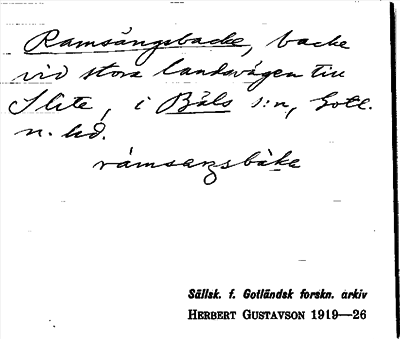 Ramsängsbacke, backe
vid stora landsvägen till
Slite, i Bäls s:n, Gotl.
n. hd.
ràmsaŋsbàke
Sällsk. f. Gotländsk forskn. arkiv
HERBERT GUSTAVSON 1919—26